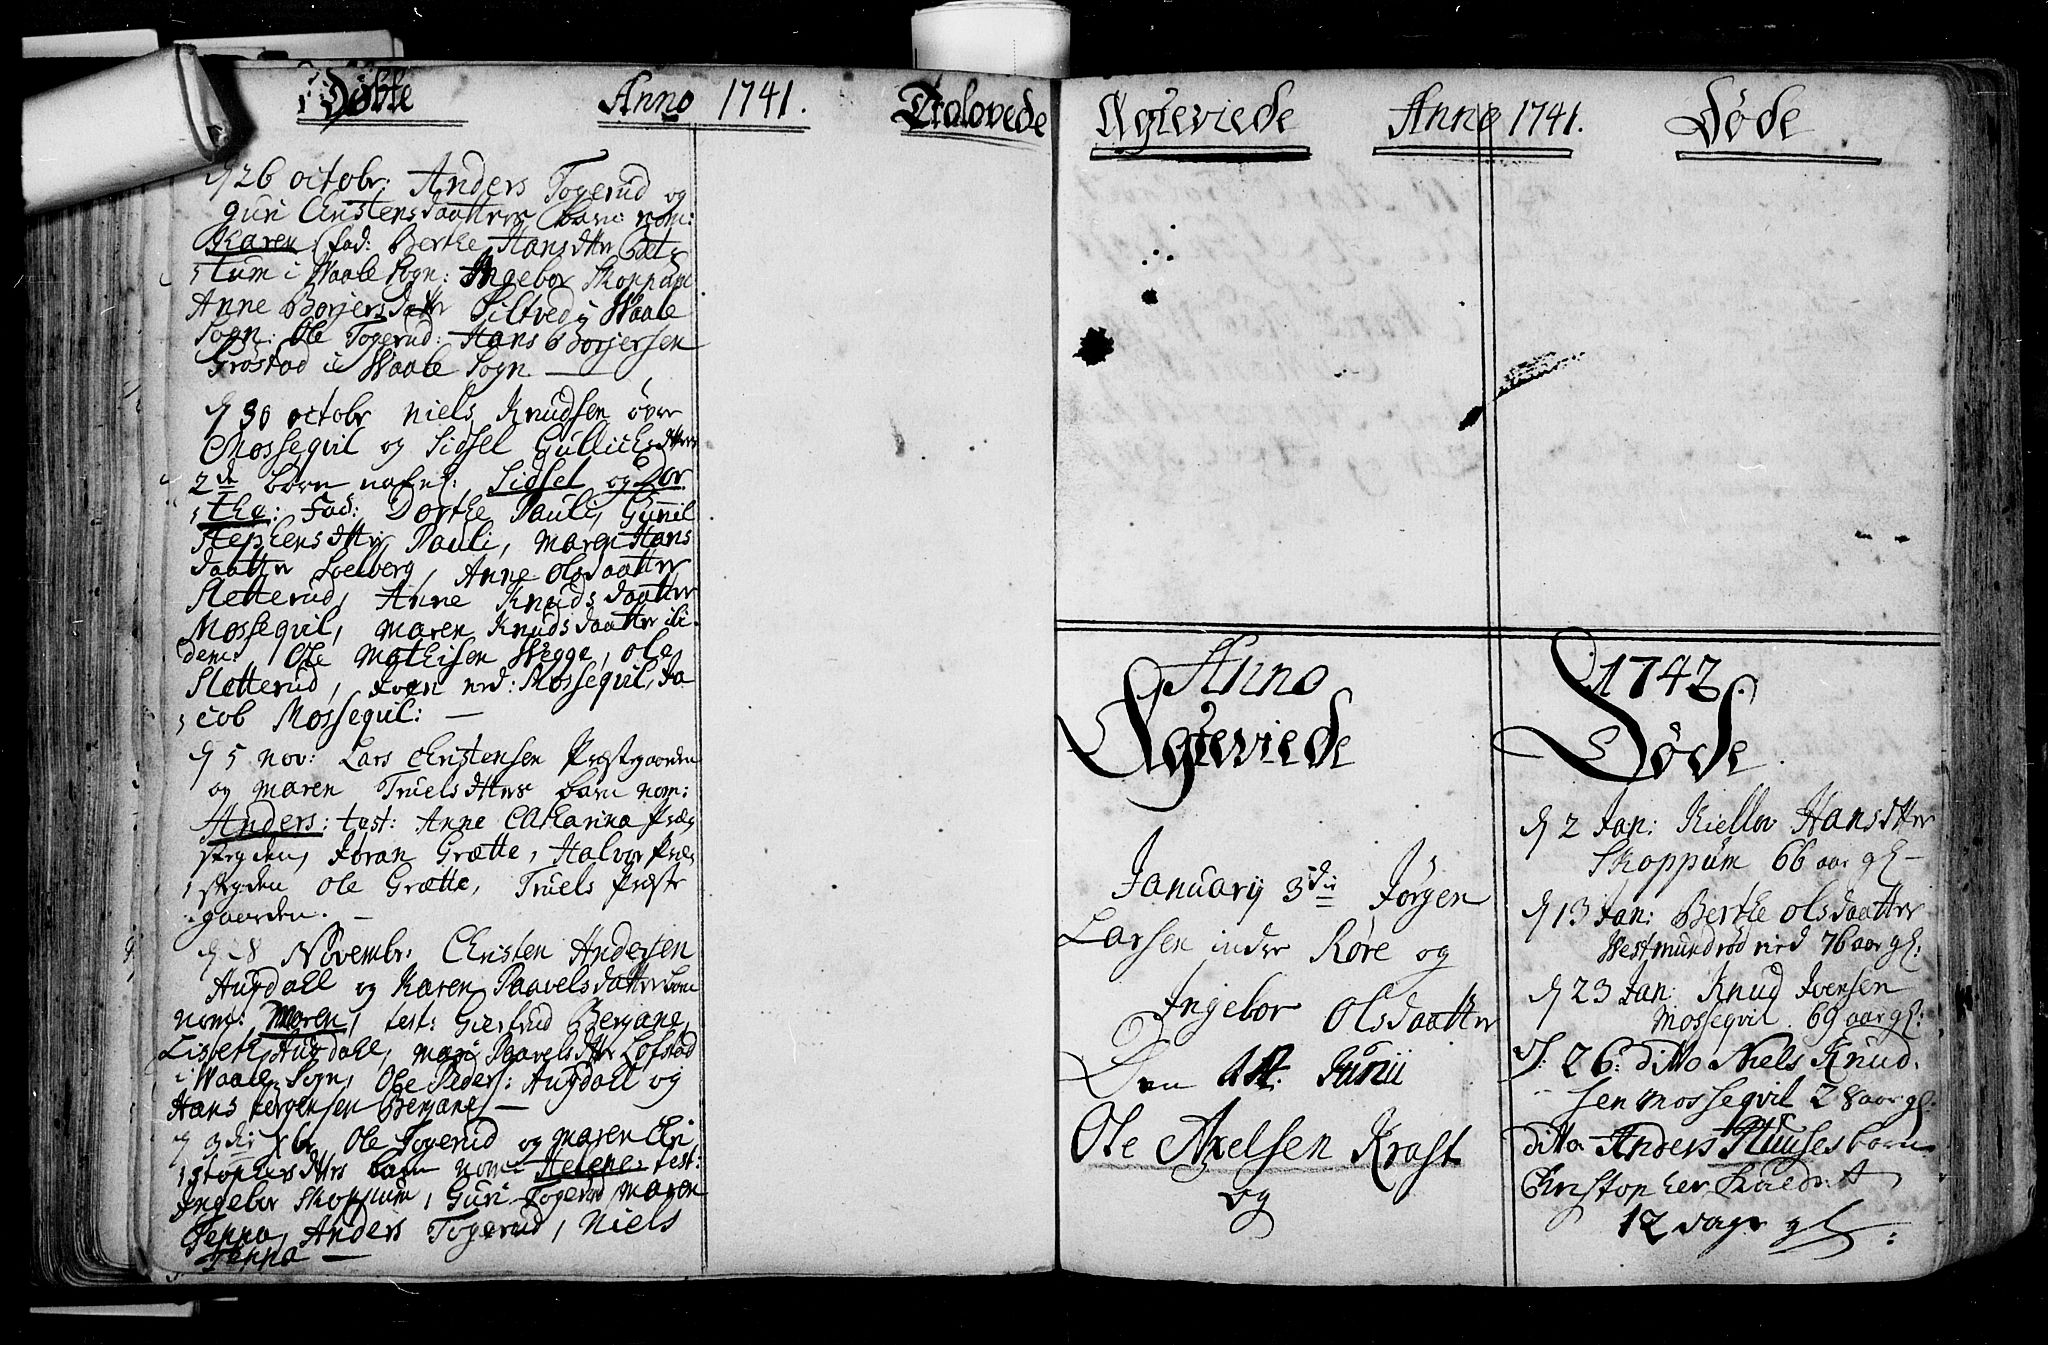 Døbte Anno 1741. Trolovede
d 26 octobr: Anders Togerud og
guri Christensdaatters barn: nom:
Karen fad: Berthe Hansdtter
stum i Waale Sogn: Ingebor Skoppum
Anne Borjersdatter Siltved i Waale
Sogn: Ole Togerud: Hans Borjersen
Grøstad i Waale Sogn —
d 30 octobr Niels Knudsen øvre
Mosseqvil og Sidsel Gullichsdtters
2de børn nafnl: Sidsel og Dor
the: Fad: Dorthe Pauli, Gunil
Stephensdtter Pauli, Maren Hans
daatter Soelberg, Anne Olsdaatter
Sletterud, Anne Knudsdaatter
Mossequil, maren Knudsdaatter ibi
dem: Ole Mathisen Wegge, ole
Sletterud, Joen ned: Mossequil, Ja
cob Mossequil: —
d 5 nov: Lars Christensen Præstegaarden
og maren Truelsdtters barn nom:
Anders: test: Anne Catharina Præ
stegden, Joran Grætte, Halvor Præ
stegden Ole Grætte, Truels Præste
gaarden. —
d 28 Novembr: Christen Andersen
Augdall og Karen Paavelsdatter barn
nom: Maren, test: Giertrud Bergane,
Lisseth Augdahl, mari Paavelsdtter Lofstad
i Waale Sogn, Ole Peders: Augdall og
Hans Jørgensen Bergane —
d 9di Xbr Ole Togerud og Maren Chri
stophersdtters barn nom: Helene: test:
Ingebor Skoppum, Guri Togerud Maren
Jeppo, Anders Togerud, Niels
Jeppo —
Ægteviede Anno 1741. Døde
Anno 1742.
Ægteviede
January 3die Jørgen
Larsen Røre og
Ingebor Olsdaatter
Den Junii
Ole Axelsen Krast
og
Døde
d 2 Jan: Kiellov Hansdtter
Skoppum 66 aar gl —
d 13 Jan: Berthe Olsdaatter
Westmundrød ned 76 aar gl:
d 23 Jan: Knud Joensen
Mossequil 69 aar gl:
d: 26: ditto Niels Knud
sen mosseqvil 28 aar gl:
ditto Anders barn
Christopher
12 dage gl: